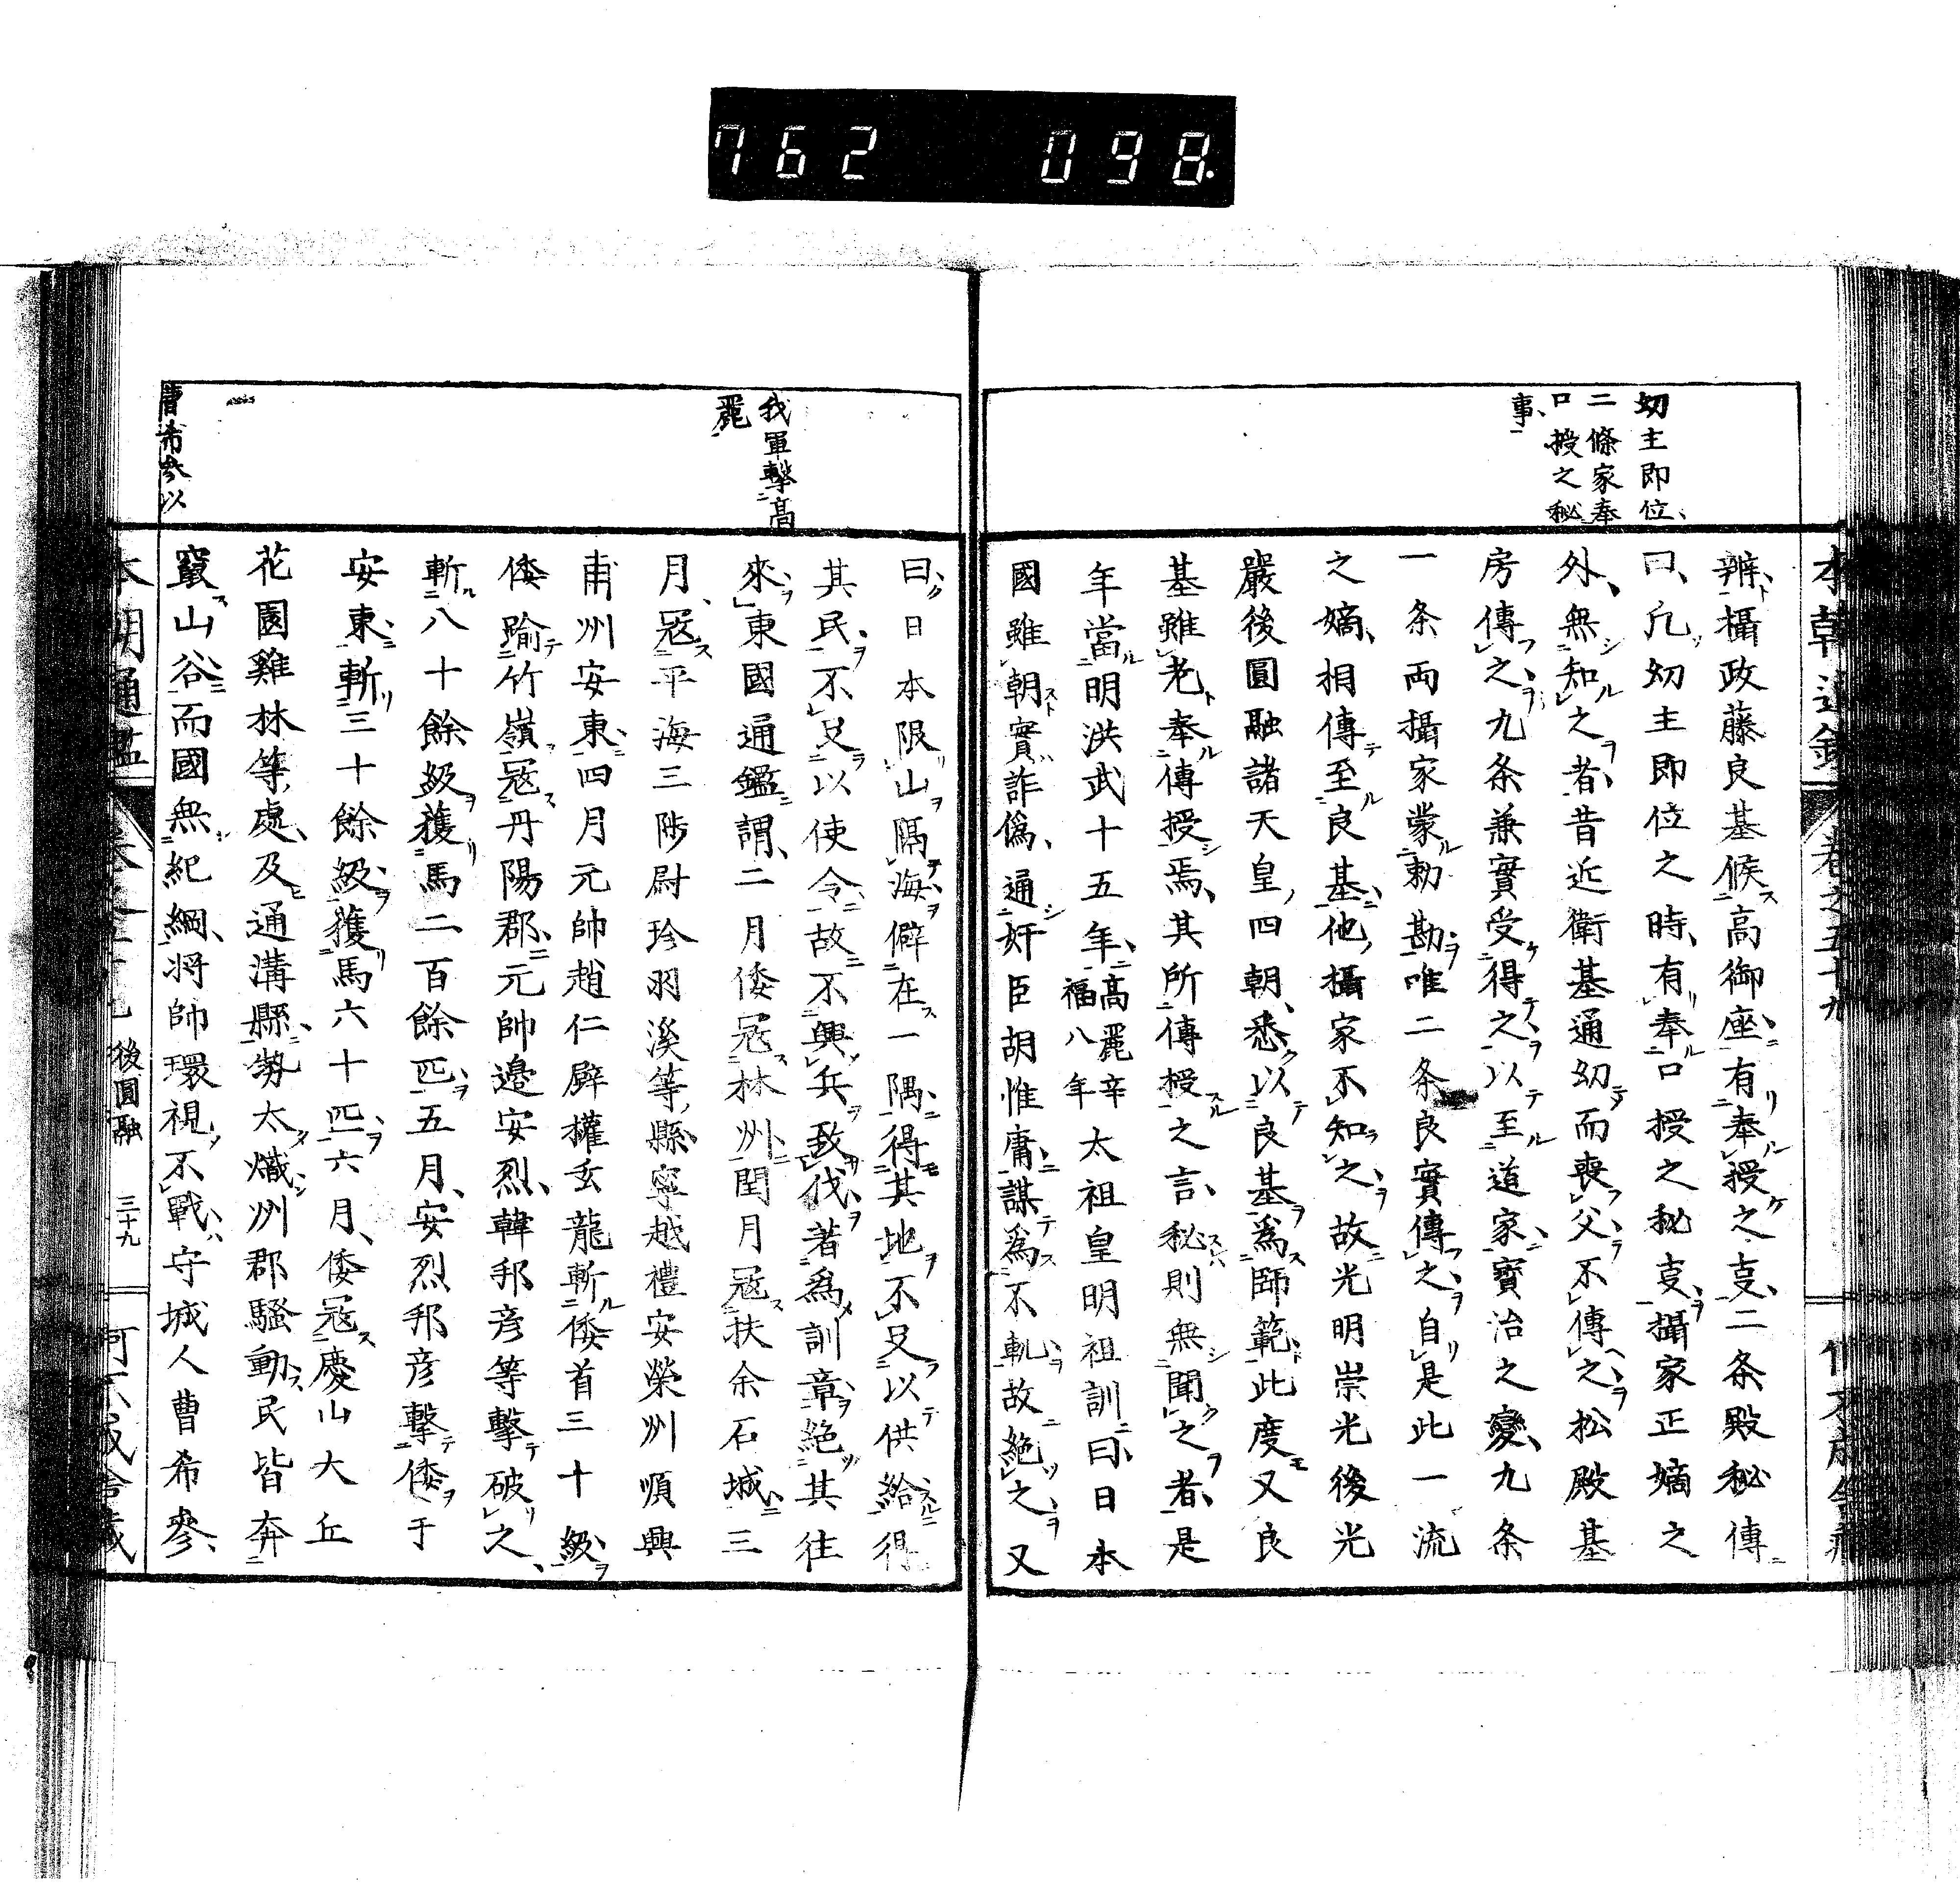 762 098.
幼主即位、
二條家奉
口授之秘
事、
辨攝政藤良基候高御座有奉授之㕝二条殿秘傳
曰、凡幼主即位之時、有奉口授之秘㕝攝家正嫡之
外、無知之者、昔近衛基通幼而喪父不傳之松殿基
房傳之九条兼實受得之以至道家實治之變、九条
一条両攝家蒙勅勘唯二条良實傳之自是此一流
之嫡、相傳至良基他攝家不知之故光明崇光後光
嚴後圓融諸天皇四朝、悉以良基爲師範此度又良
基雖老奉傳授焉、其所傳授之言、秘則無聞之者、是
年當明洪武十五年、高麗辛福八年太祖皇明祖訓曰、日本
國雖朝實詐僞、通奸臣胡惟庸謀爲不軌故絶之又
我軍擊高
麗
曰日本限山隔海僻在一隅得其地不足以供給得
其民不足以使令故不興兵致伐著爲訓章絶其往
來東國通鑑謂、二月倭冦林州閏月冦扶余石城三
月、冦平海三陟尉珍羽溪等縣寧越禮安榮州順興
甫州安東四月元帥趙仁辟權玄龍斬倭首三十級
倭踰竹嶺冦丹陽郡元帥邊安烈、韓邦彦等擊破之、
斬八十餘級獲馬二百餘匹五月、安烈邦彦擊倭于
安東斬三十餘級獲馬六十匹六月、倭冦慶山大丘
花園雞林等處、及通溝縣勢太熾州郡騷動民皆奔
竄山谷而國無紀綱將帥環視不戰守城人曹希參、
曹希參以
後圓融 三十九